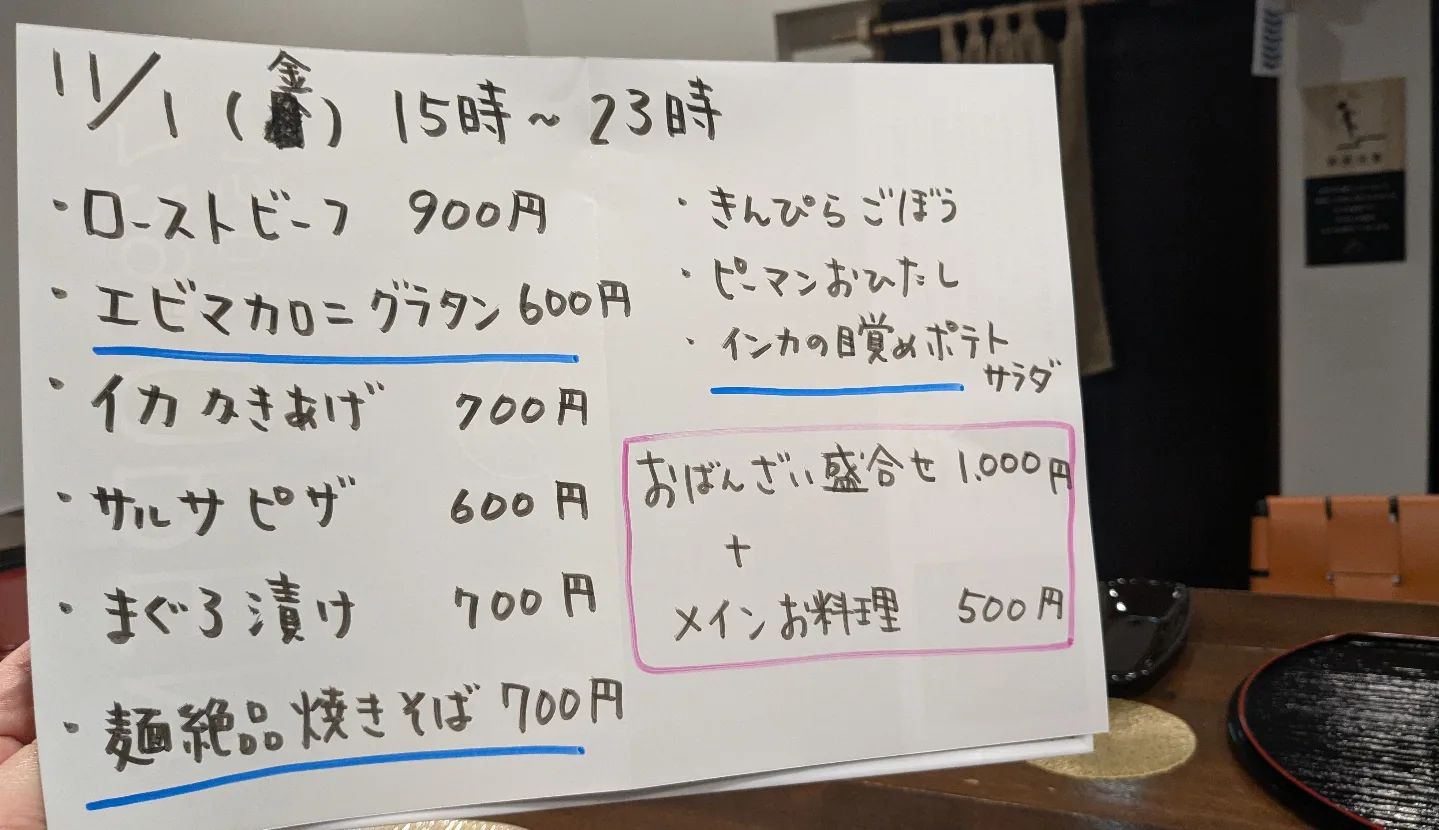 11/1 (金) 15時~23時
・ローストビーフ 900円
・エビマカロニグラタン 600円
・イカかきあげ 700円
・サルサピザ 600円
・まぐろ漬け 700円
・麺絶品焼きそば 700円
・きんぴらごぼう
・ピーマンおひたし
・インカの目覚めポテト
サラダ
おばんざい盛合せ 1.000円
+
メインお料理 500円